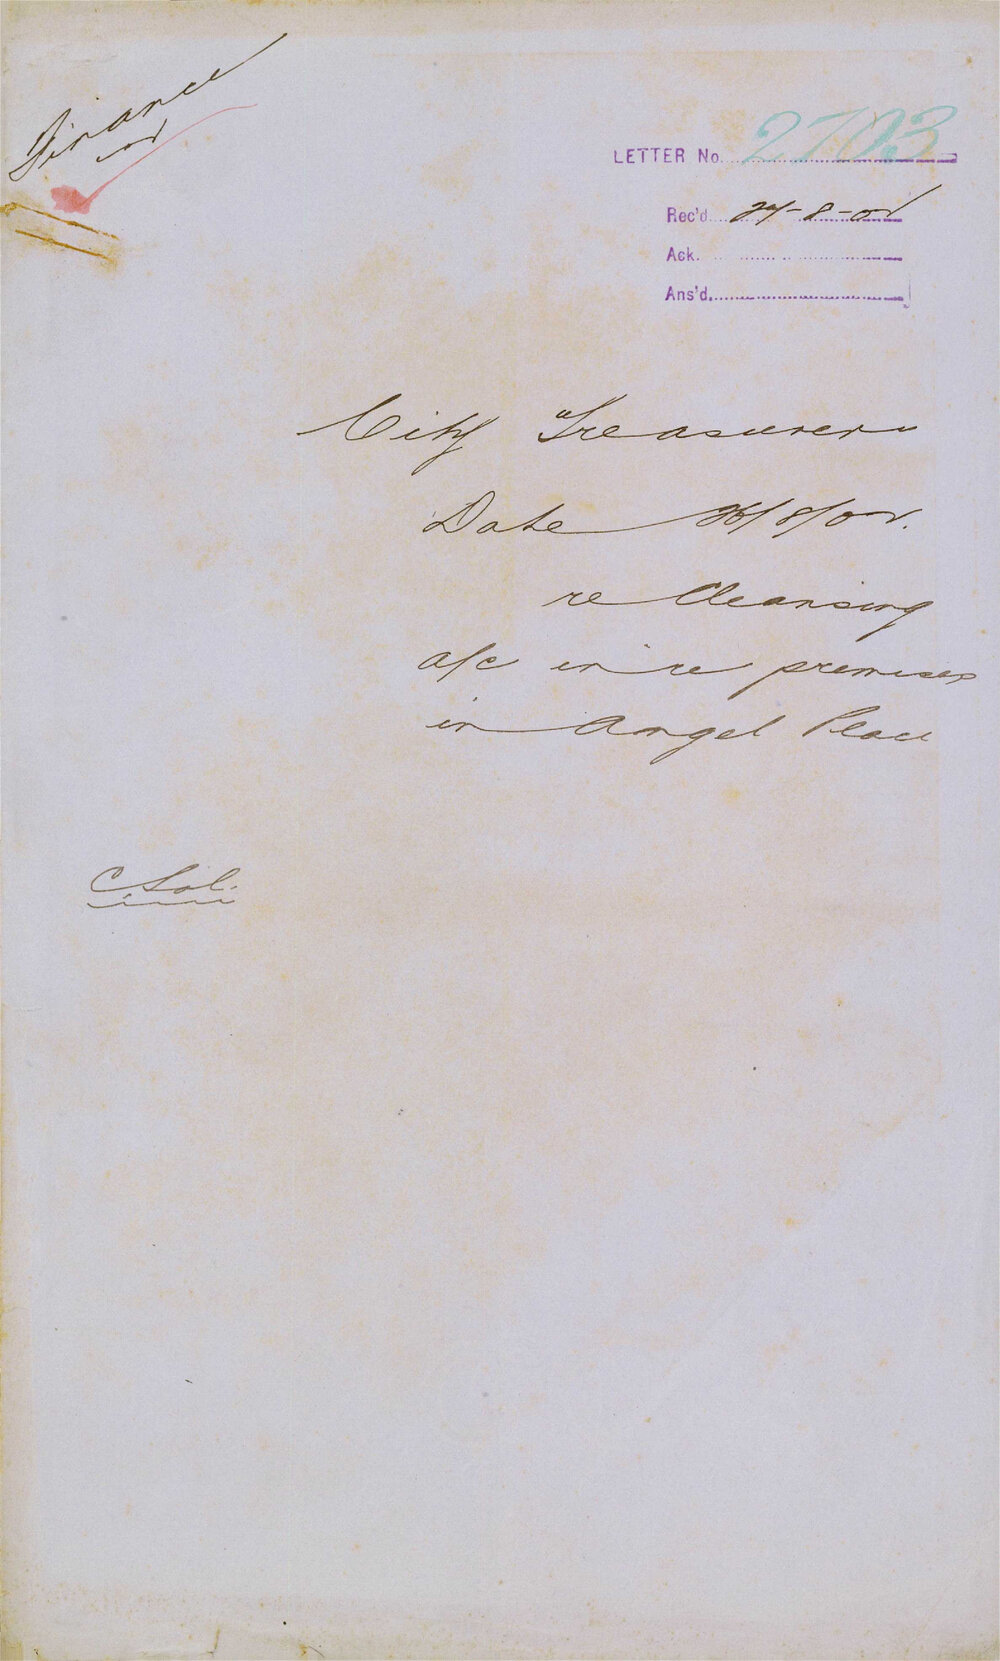 Finance
LETTER No. 2703
Rec'd. 27-8-02
Ack.
Ans'd.
City Treasurer
Date 26/8/02.
re Cleansing
a/c in re premises
in Angel Place
C Sol.